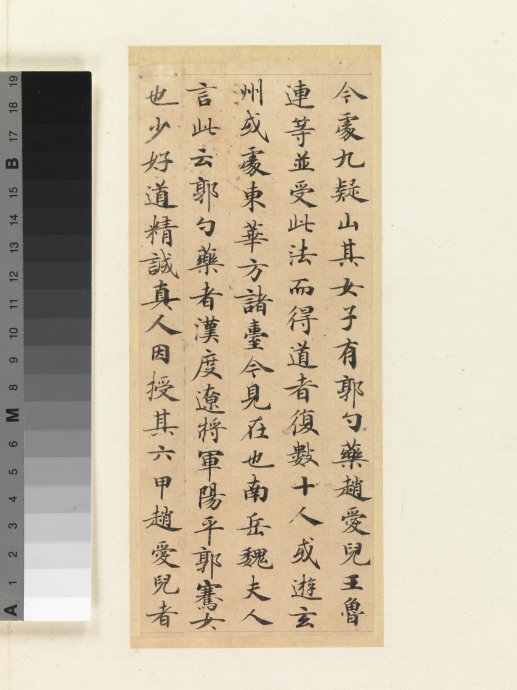 今處九疑山其女子有郭勺藥趙愛兒王魯
連等並受此法而得道者復數十人或遊玄
州或處東華方諸臺今見在也南岳魏夫人
言此云郭勺藥者漢度遼將軍陽平郭騫女
也少好道精誠真人因授其六甲趙愛兒者
19
18
17
B
15
14
13
12
11
10
9
8
M
6
5
4
3
2
1
A